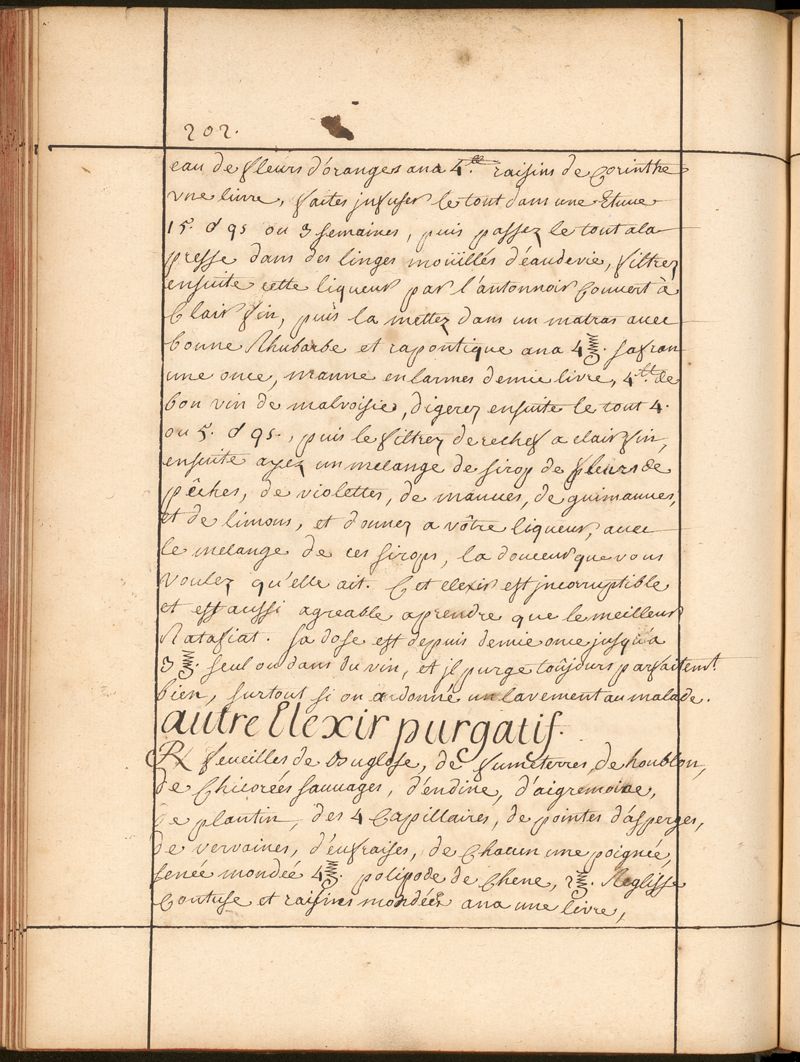 202.
eau de fleurs d'oranges ana 4.tt raisins de Corinthe
vne livre, faites jnfuser le tout dans une Etuve
15. d 95 ou 3 semaines, puis passez le tout a la
presse dans des linges moüillés d'eau de vie, filtrez
ensuite cette liqueur par l'antonnoir Couvert à
Clair fin, puis la mettez dans un matras avec
bonne Rhubarbe et rapontique ana 4 ℥. safran
une once, manne en larmes demie livre, 4.tt de
bon vin de malvoisie, digerez ensuite le tout 4.
ou 5. d 95., puis le filtrez derechef a clair fin,
ensuite ayez un melange de sirop de fleurs de
pêches, de violettes, de mauves, de guimauves,
et de limons, et donnez a vôtre liqueur, avec
le melange de ces sirops, la douceur que vous
voulez qu'elle ait. Cet elexir est jncorruptible
et est aussi agreable aprendre que le meilleur
Ratafiat. sa dose est depuis demie once jusqu'a
3 ℥. seul ou dans du vin, et jl purge toûjours parfaitemt.
bien, surtout si on a donné un lavement au malade.
autre Elexir purgatif.
℞ feveilles de Buglose, de fumeterres, de houblon,
de Chicorées sauvages, d'endive, d'aigremoine,
de plantin, des 4 Capillaires, de pointes d'asperges,
de vervaines, d'eufraises, de Chacun une poignée,
senée mondée 4 ℥. polipode de Chene, 2 ℥. Reglisse
Contuse et raisins mondées ana une livre,